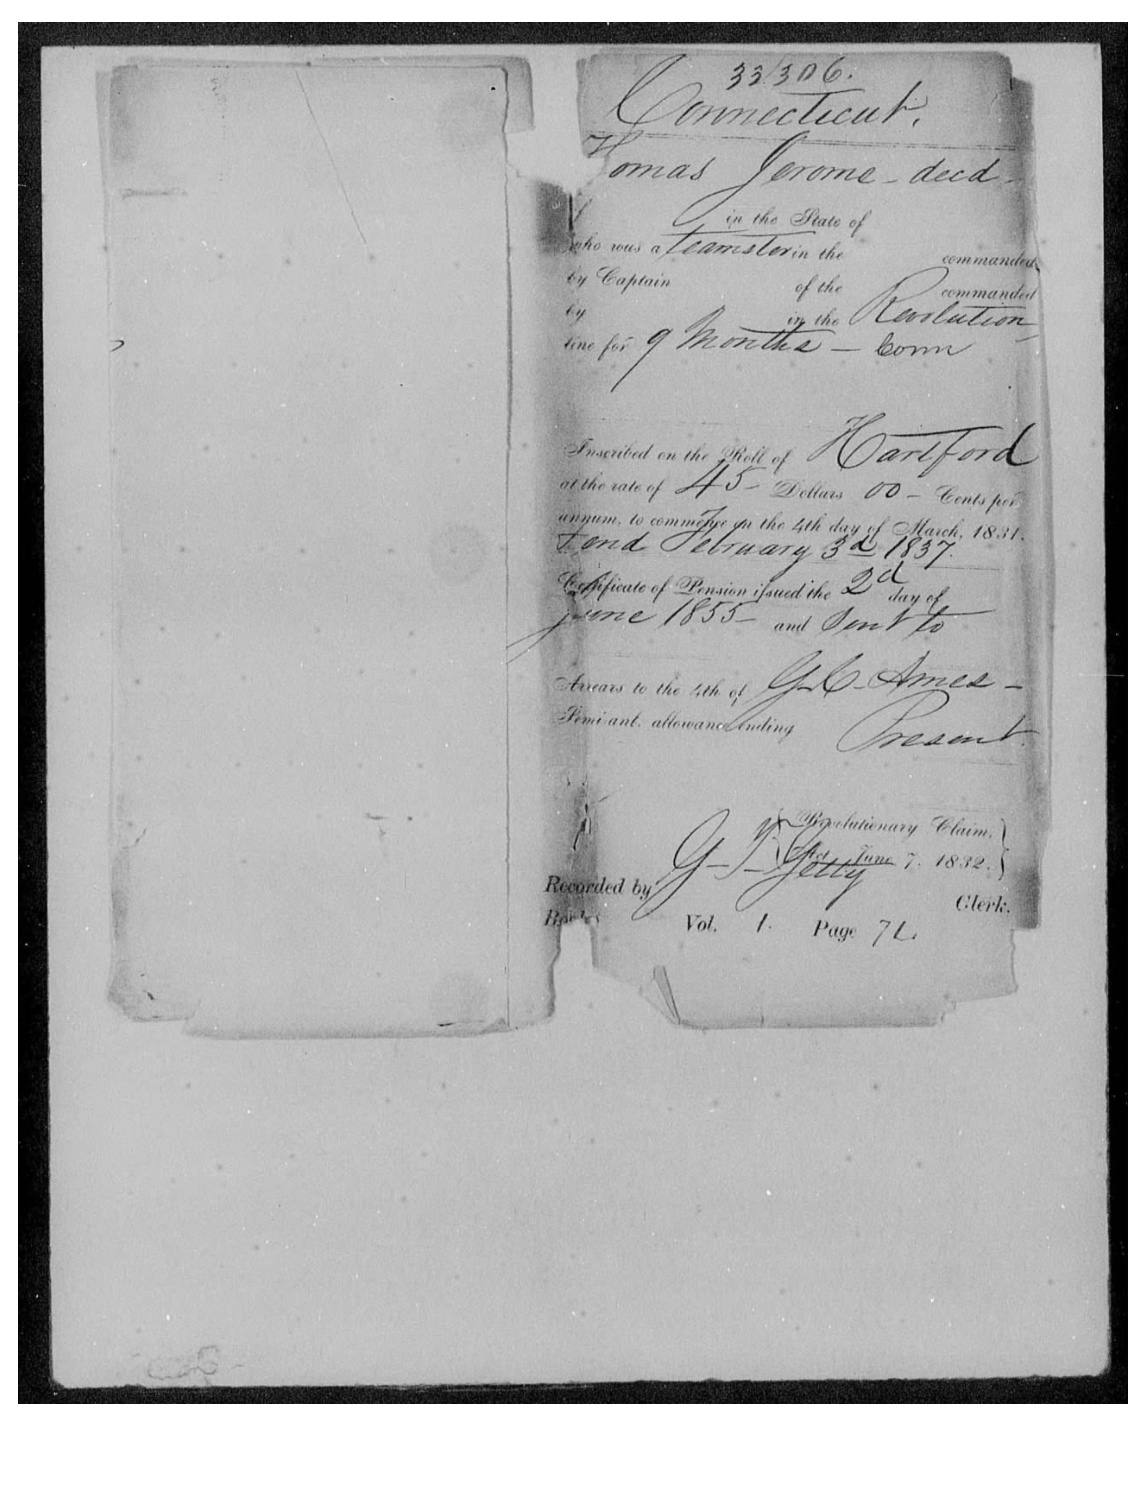 33306.
Connecticut.
Thomas Jerome - decd -
in the State of
who was a teamster in the commanded
by Captain of the commanded
by in the Revolution
line for 9 Months - Conn
Inscribed on the Roll of Hartford
at the rate of 45 - Dollars 00 - Cents per
annum, to commence on the 4th day of March, 1831.
& end February 3d 1837.
Certificate of Pension issued the 2d day of
June 1855 - and Sent to
G. C. Ames -
Arrears to the 4th of
Semi-ant. allowance ending
Present.
Revolutionary Claim,
Act June 7. 1832.
Recorded by G. T. Getty Clerk.
Book Vol. 1. Page 71.